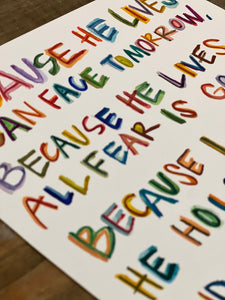 BECAUSE HE LIVES
CAN FACE TOMORROW,
BECAUSE HE LIVES
ALL FEAR IS GO
BECAUSE I
HE HOL